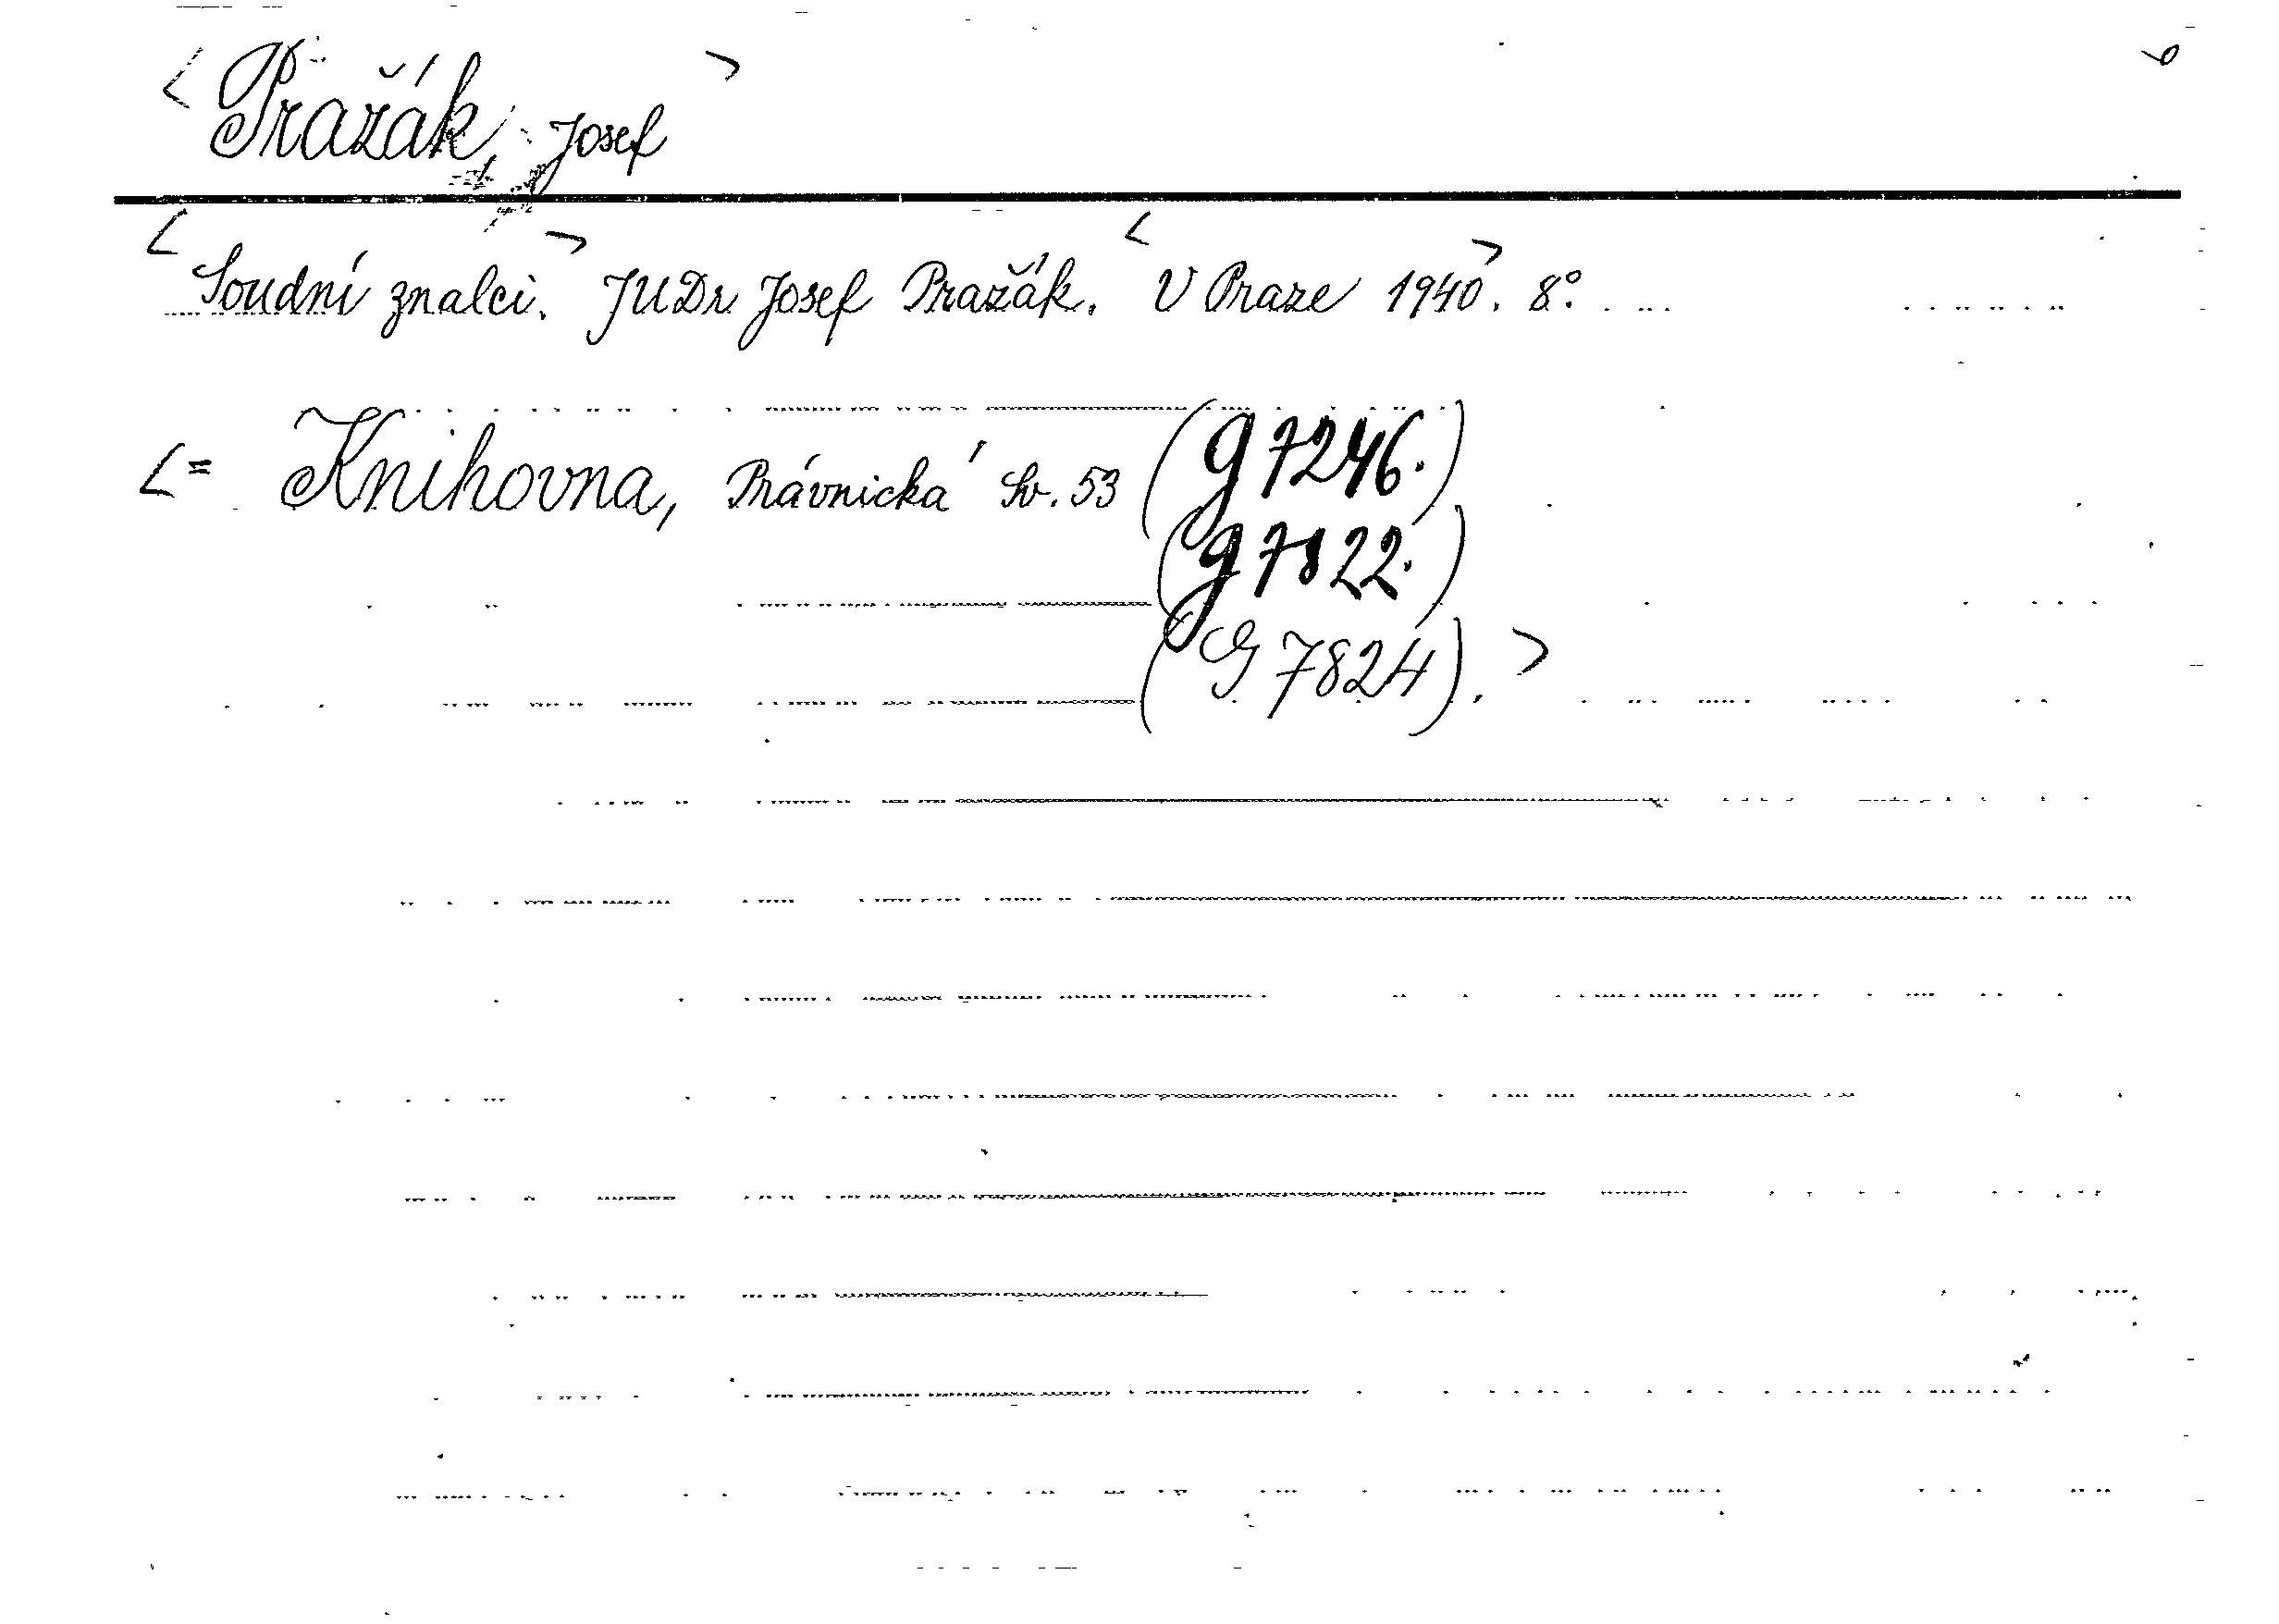 < Pražák, Josef >
< Soudní znalci. > JUDr Josef Pražák. < V Praze 1940 >. 8°.
< = Knihovna, Právnická Sv. 53 (g 7246.)
(g 7822.)
(G 7824). >